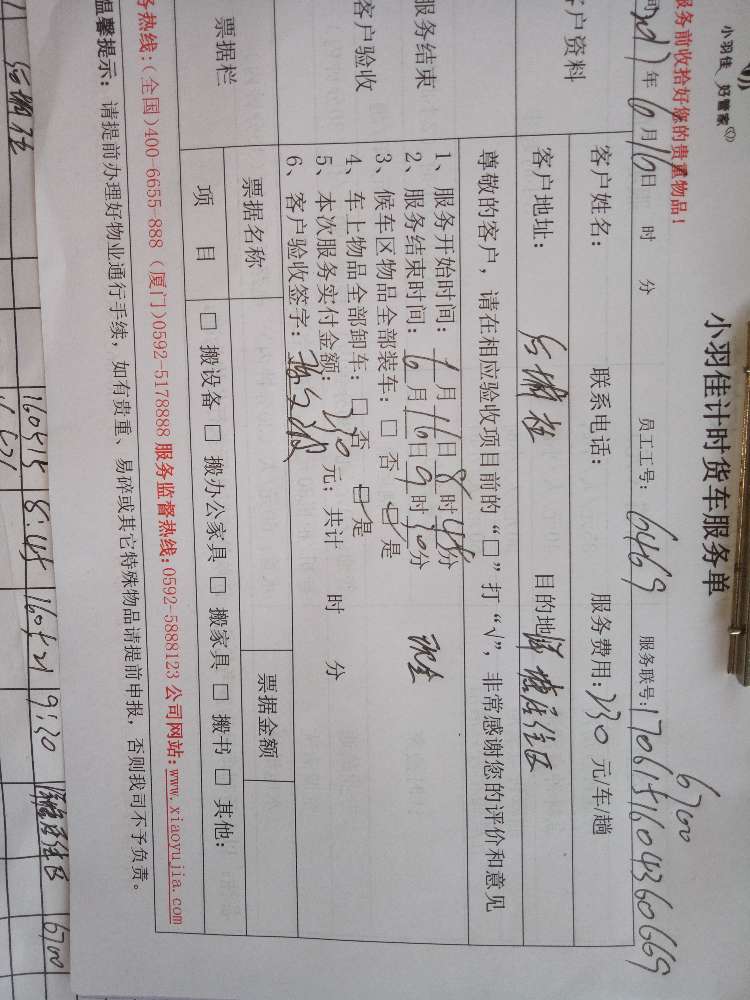 小羽佳 好管家
小羽佳计时货车服务单
服务前收拾好您的贵重物品!
6700
年6月16日 时 分 员工工号: 6469 服务联号: 1706151604360669
客户资料 客户姓名: 联系电话: 服务费用: 230 元/车/趟
客户地址: 目的地
尊敬的客户, 请在相应验收项目前的“□”打“√”, 非常感谢您的评价和意见
服务结束
客户验收
1、服务开始时间: 月16日8时45分
2、服务结束时间: 6月16日9时30分 现金
3、候车区物品全部装车: □ 否 □ 是
4、车上物品全部卸车: □ 否 □ 是
5、本次服务实付金额: 230 元; 共计 时 分
6、客户验收签字:
票据栏 票据名称 票据金额
项 目 □ 搬设备 □ 搬办公家具 □ 搬家具 □ 搬书 □ 其他:
务热线:(全国)400-6655-888 (厦门)0592-5178888 服务监督热线:0592-5888123 公司网站:www.xiaoyujia.com
温馨提示: 请提前办理好物业通行手续, 如有贵重、易碎或其它特殊物品请提前申报, 否则我司不予负责。
8:45 9:30 6700